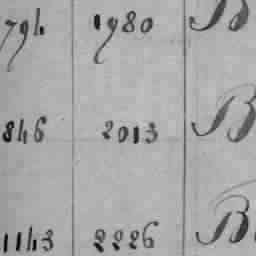 794 1980 B
846 2013 B
1143 2226 B